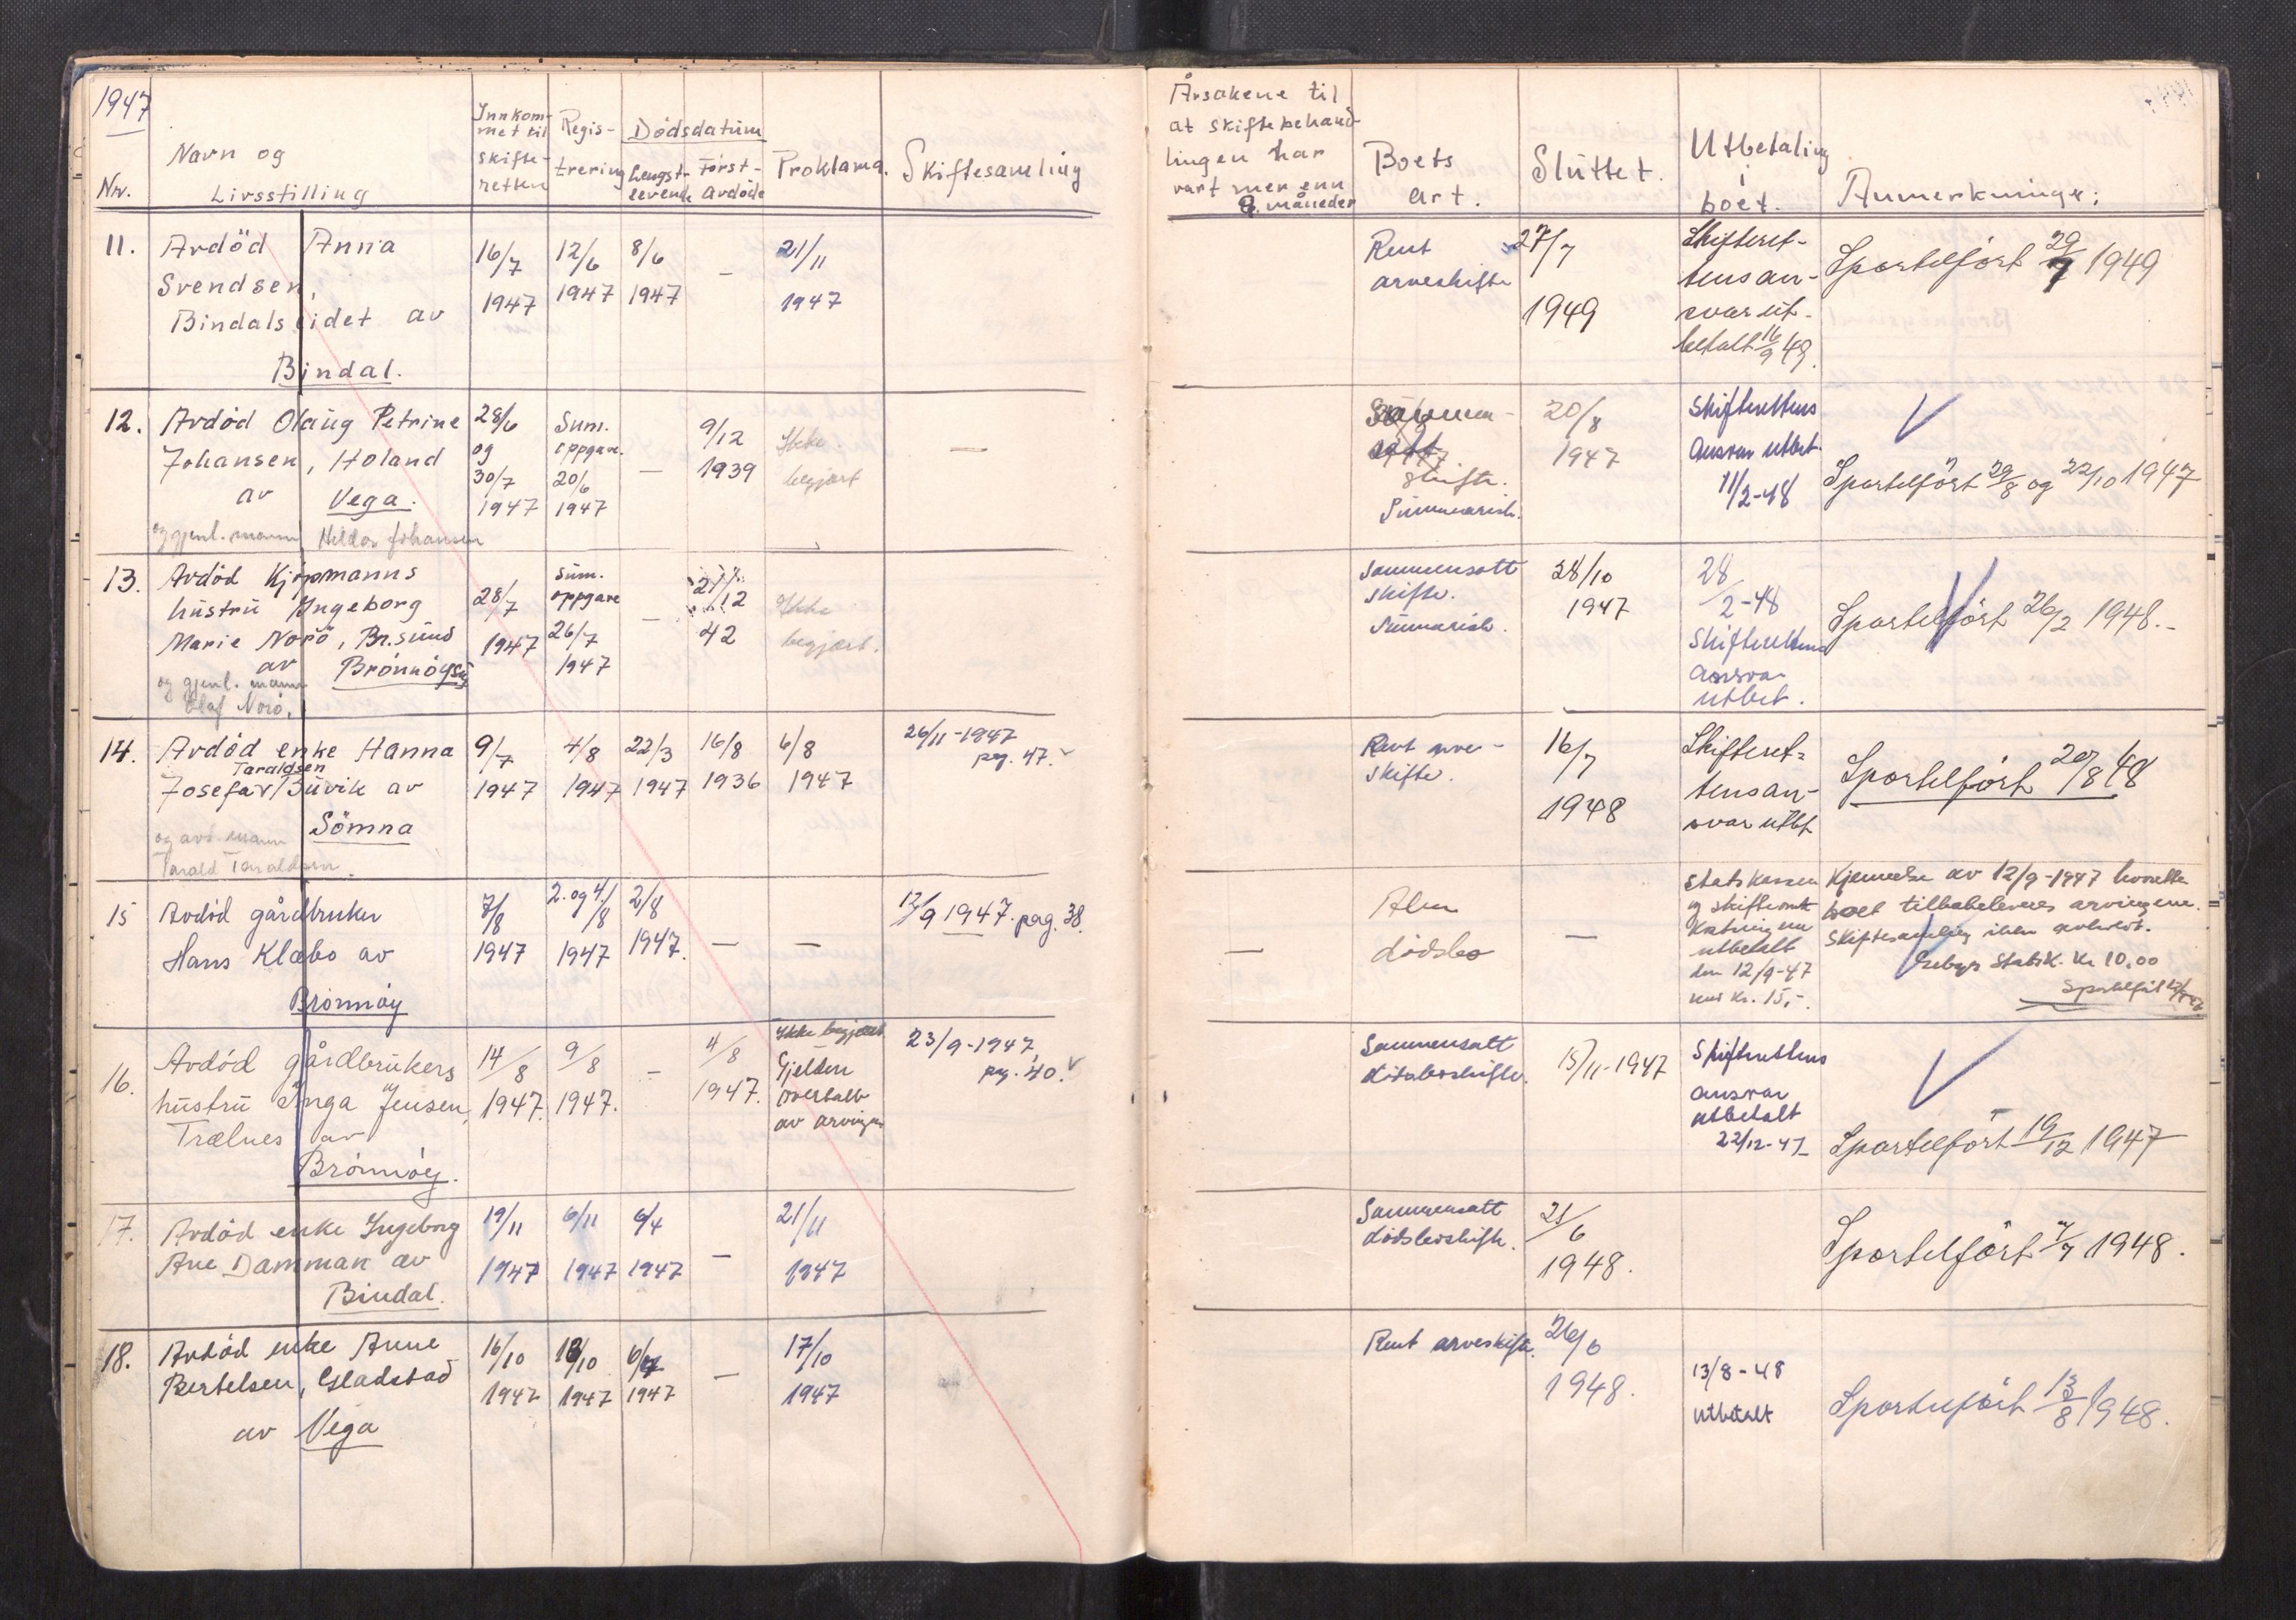 1947
Nr.
Navn og
Livsstilling
Innkom-
met til
skifte-
retten
Regis-
trering
Dödsdatum
Lengst-
levende
Först-
avdöde
Proklama.
Skiftesamling
Årsakene til
at skiftebehand-
lingen har
vart mer enn
måneder
Boets
art.
Sluttet.
Utbetaling
i
boet.
Anmerkninger:
11. Avdöd Anna
Svendsen,
Bindalseidet av
Bindal.
16/7
1947
12/6
1947
8/6
1947
-
21/11
1947
Rent
arveskifte
27/7
1949
Skifteret-
tens an-
svar ut-
betalt 16/9 49.
Sportelfört 29/7 1949
12. Avdöd Olaug Petrine
Johansen, Holand
av Vega.
og gjenl. mann Hildor Johansen
28/6
og
30/7
1947
Sum.
oppgave.
20/6
1947
-
9/12
1939
Ikke
begjært
-
skifte.
Summarisk.
20/8
1947
Skifterettens
Ansvar utbet.
11/2-48
Sportelfört 29/8 og 22/10 1947
13. Avdöd Kjöpmanns
hustru Ingeborg
Marie Norö, Br.sund
av Brönnöysund
og gjenl. mann
Olaf Norö.
28/7
1947
Sum.
oppgave
26/7
1947
-
21/12
42
Ikke
begjært.
Sammensatt
skifte.
Summarisk.
28/10
1947
28
/2-48
Skifterettens
ansvar
utbet.
Sportelfört 26/2 1948.-
14. Avdöd enke Hanna
Taraldsen
Josefa v/Buvik av
Sömna
og avd. mann
Tarald Taraldsen.
9/7
1947
4/8
1947
22/3
1947
16/8
1936
6/8
1947
26/11-1947
pag. 47.
Rent arve-
skifte.
16/7
1948
Skifteret-
tens an-
svar utbt
Sportelfört 20/8 48
15 Avdöd gårdbruker
Hans Klæbo av
Brönnöy
7/8
1947
2. og 4/8
1947
2/8
1947.
-
-
12/9 1947. pag. 38.
-
dödsbo
-
Statskassen
og skiftevitt.
utbetalt
den 12/9-47
med kr. 15,-.
Kjennelse av 12/9-1947 hvoretter
boet tilbakeleveres arvingene.
Skiftesamling ikke avholdt.
Gebyr Statsk. kr 10.00
16. Avdöd gårdbrukers
hustru Inga Jensen,
Trælnes av
Brönnöy.
14/8
1947.
9/8
1947.
-
4/8
1947.
Ikke begjært
Gjelden
overtatt
av arvinger
23/9-1947,
pag. 40.
Sammensatt
dödsboskifte.
15/11-1947
Skifterettens
ansvar
utbetalt
22/12-47
Sportelfört 19/12 1947
17. Avdöd enke Ingeborg
Ane Damman av
Bindal.
19/11
1947
6/11
1947
6/4
1947
-
21/11
1947
Sammensatt
dödsboskifte.
21/6
1948.
Sportelfört 2/7 1948.
18. Avdöd enke Anne
Bertelsen, Gladstad
av Vega
16/10
1947
18/10
1947
6/7
1947
-
17/10
1947
Rent arveskifte.
26/6
1948.
13/8-48
utbetalt
Sportelfört 13/8 1948.